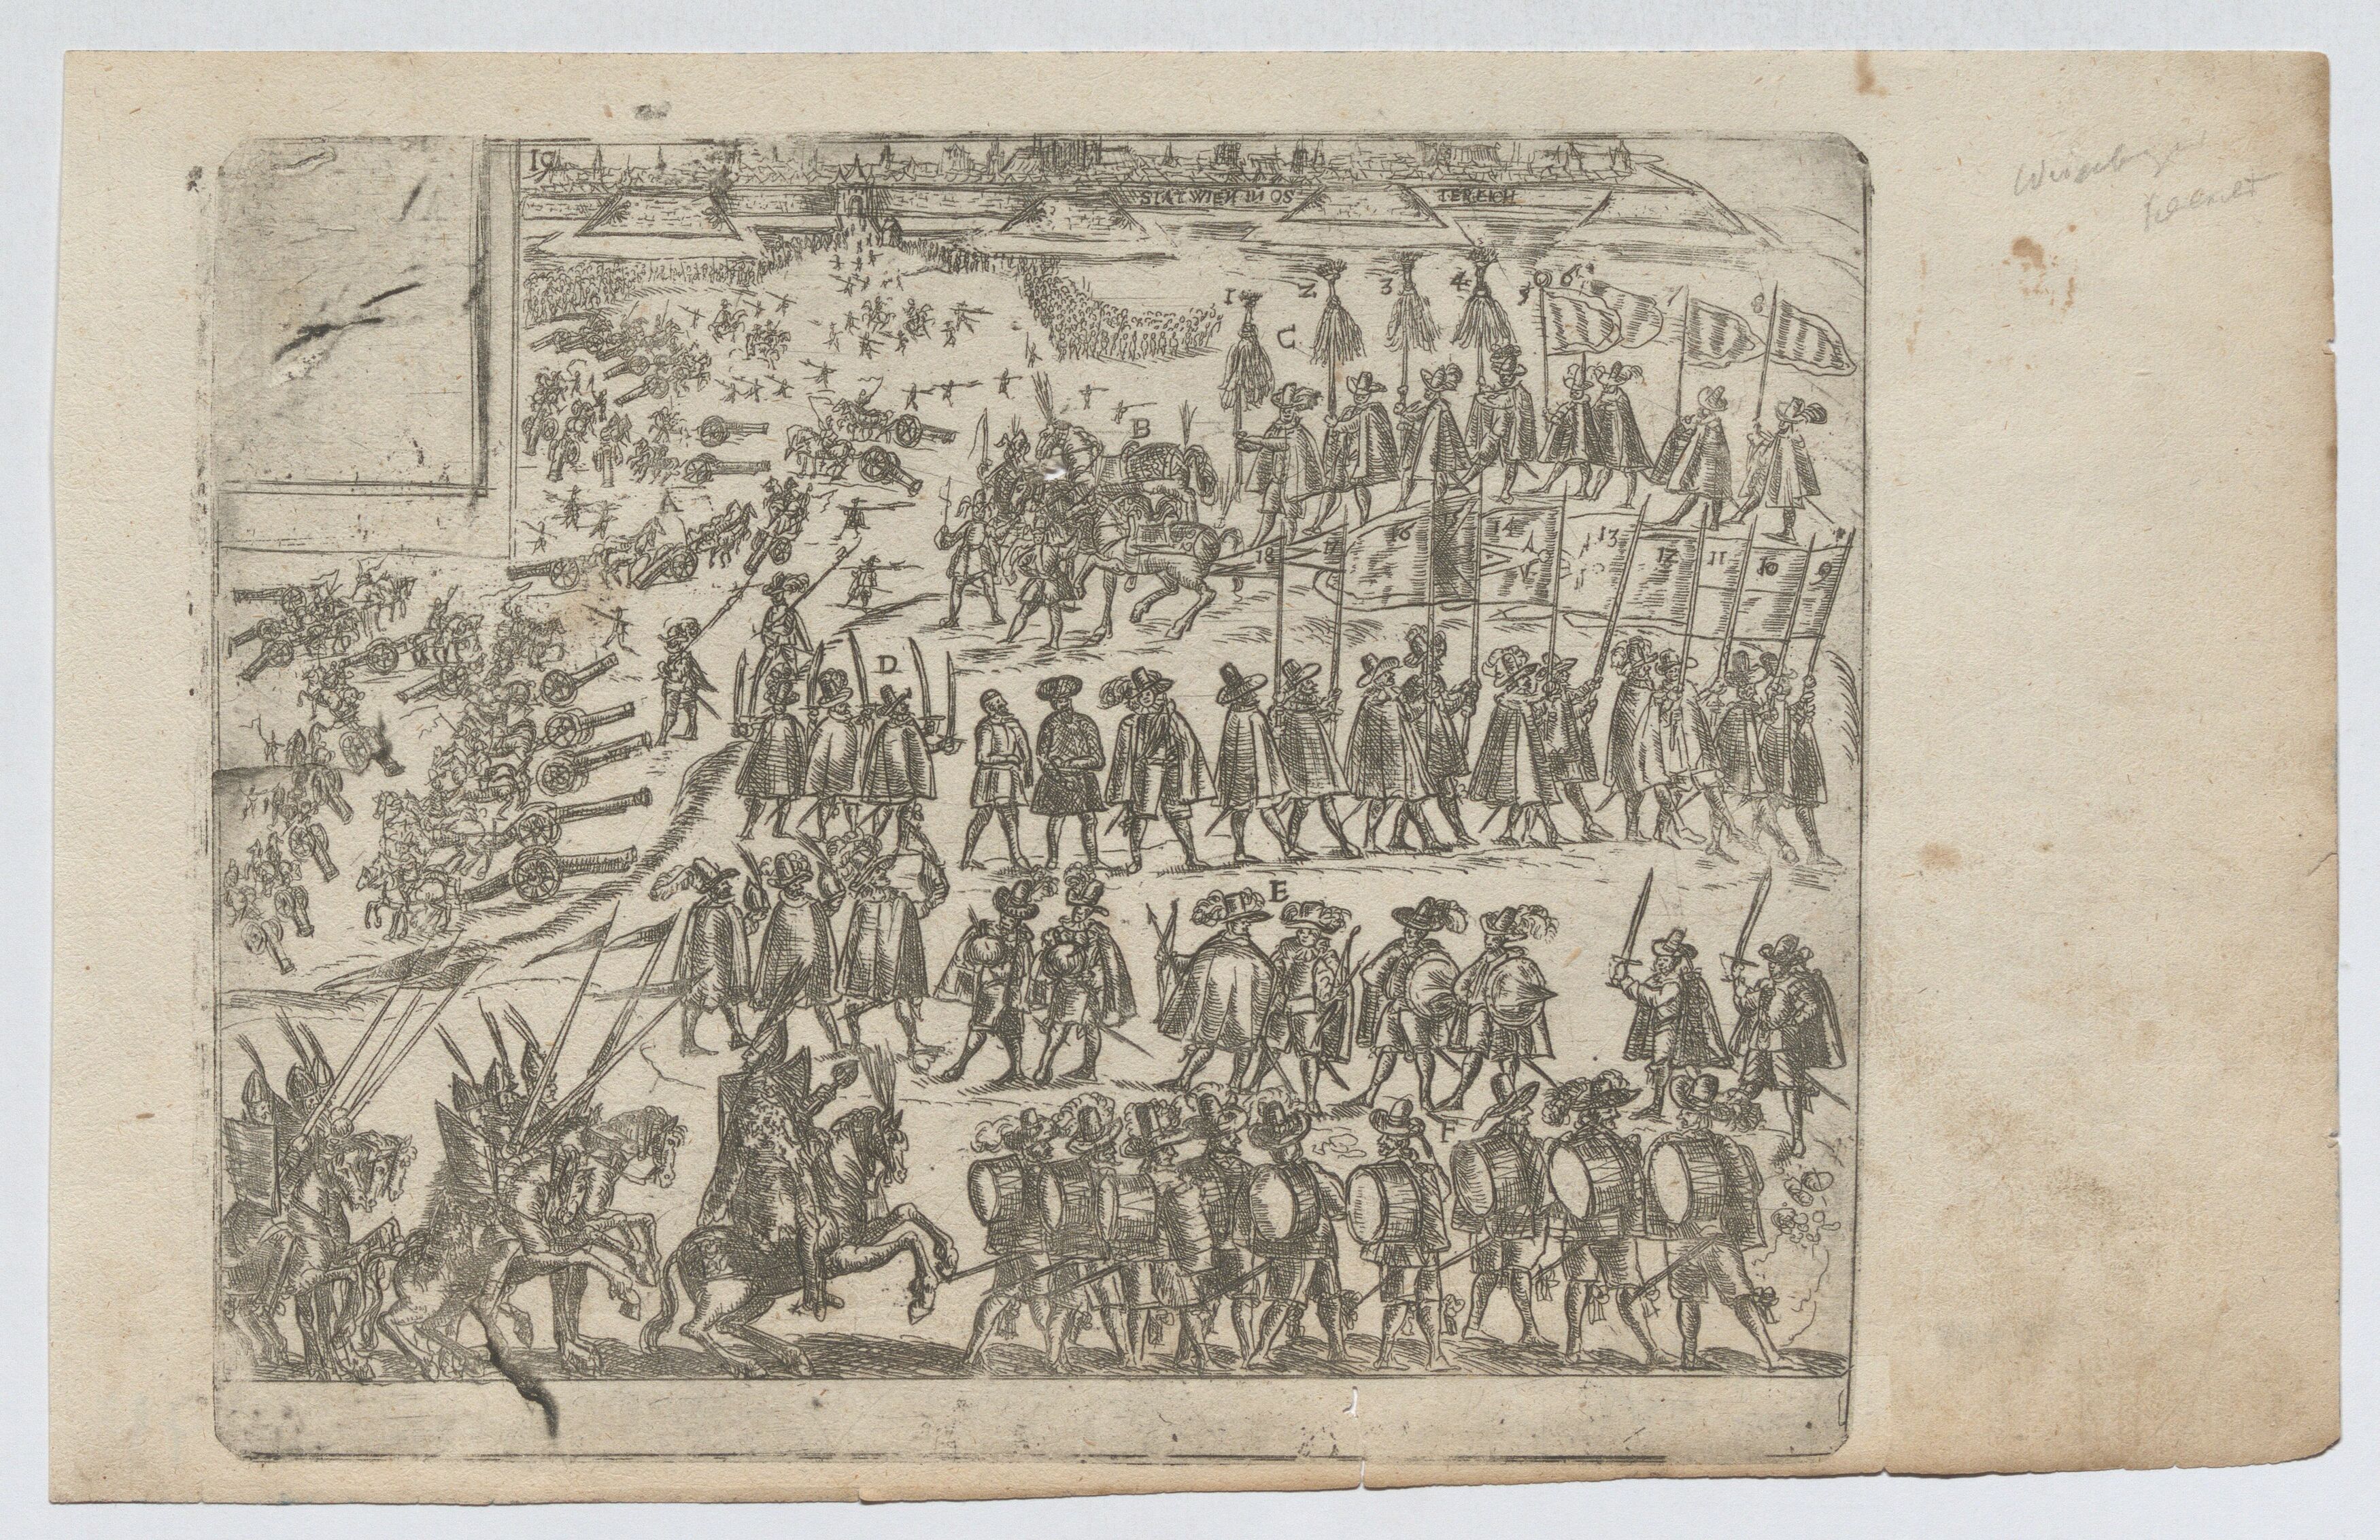 19
STAT WIEN IN OS TEREICH
1 2 3 4 5 6 7 8
C
B
A
18 17 16 14 13 12 11 10 9
D
E
F